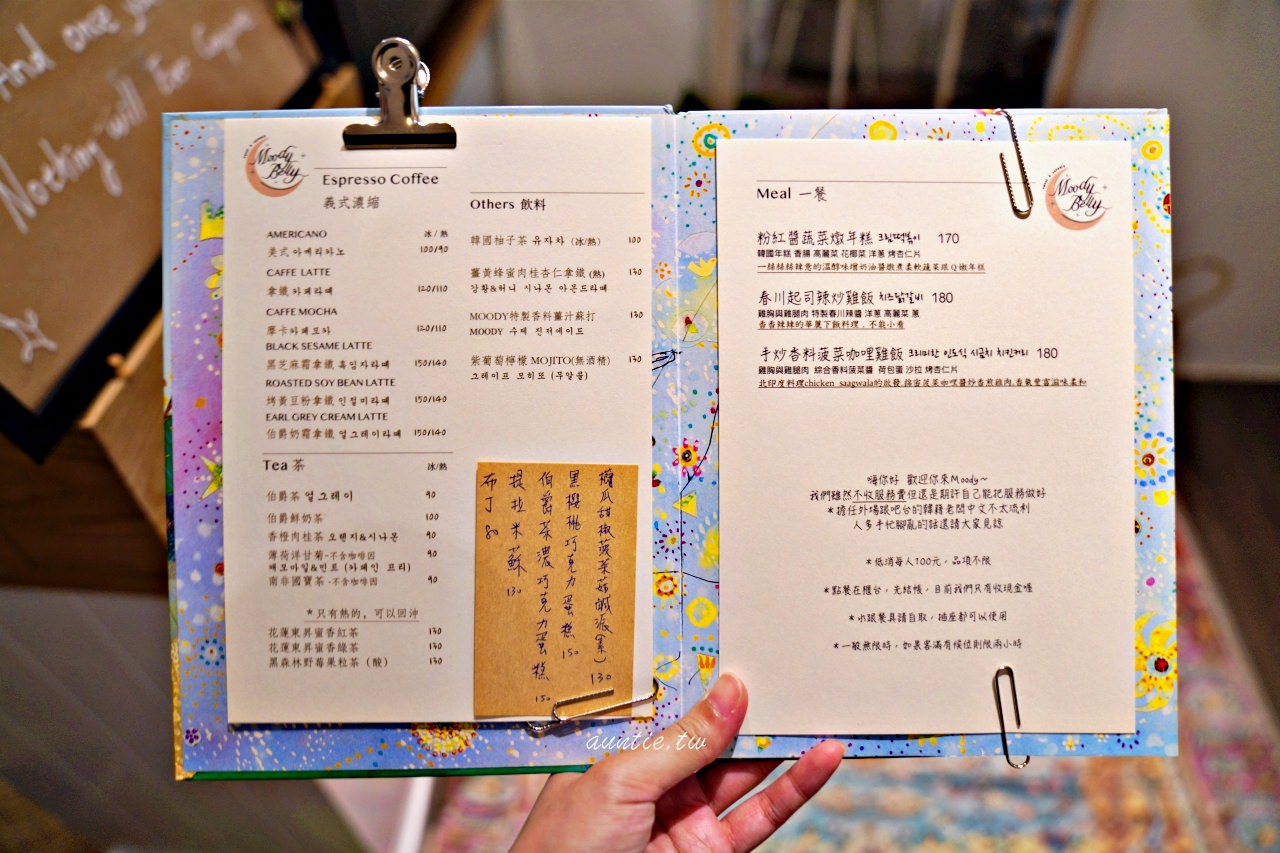 And once you
Nothing will Ever Change
Moody Belly
Espresso Coffee
義式濃縮
AMERICANO 冰/熱
美式 아메리카노 100/90
CAFFE LATTE
拿鐵 카페라떼 120/110
CAFFE MOCHA
摩卡 카페모카 120/110
BLACK SESAME LATTE
黑芝麻霜拿鐵 흑임자라떼 150/140
ROASTED SOY BEAN LATTE
烤黃豆粉拿鐵 인절미라떼 150/140
EARL GREY CREAM LATTE
伯爵奶霜拿鐵 얼그레이라떼 150/140
Tea 茶 冰/熱
伯爵茶 얼그레이 90
伯爵鮮奶茶 100
香橙肉桂茶 오렌지&시나몬 90
薄荷洋甘菊-不含咖啡因 90
캐모마일&민트 (카페인 프리)
南非國寶茶-不含咖啡因 90
*只有熱的，可以回沖
花蓮東昇蜜香紅茶 130
花蓮東昇蜜香綠茶 130
黑森林野莓果粒茶（酸） 130
Others 飲料
韓國柚子茶 유자차（冰/熱） 100
薑黃蜂蜜肉桂杏仁拿鐵 (熱) 130
강황&허니 시나몬 아몬드라떼
MOODY特製香料薑汁蘇打 130
MOODY 수제 진저에이드
紫葡萄檸檬 MOJITO(無酒精) 130
그레이프 모히또 (무알콜)
櫛瓜甜椒菠菜菇鹹派(素) 130
黑櫻桃巧克力蛋糕 150
伯爵茶濃巧克力蛋糕 150
提拉米蘇 130
布丁 80
Moody Belly
Meal 一餐
粉紅醬蔬菜燉年糕 크림떡볶이 170
韓國年糕 香腸 高麗菜 花椰菜 洋蔥 烤杏仁片
一絲絲絲辣意的溫醇味增奶油醬燉煮柔軟蔬菜跟Q嫩年糕
春川起司辣炒雞飯 치즈닭갈비 180
雞胸與雞腿肉 特製春川辣醬 洋蔥 高麗菜 蔥
香香辣辣的華麗下飯料理，不能小看
手炒香料菠菜咖哩雞飯 크리미한 인도식 시금치 치킨커리 180
雞胸與雞腿肉 綜合香料菠菜醬 荷包蛋 沙拉 烤杏仁片
北印度料理chicken saagwala的改發,綿密菠菜咖哩醬炒香煎雞肉,香氣豐富滋味柔和
嗨你好 歡迎你來Moody~
我們雖然不收服務費但還是期許自己能把服務做好
*擔任外場跟吧台的韓籍老闆中文不太流利
人多手忙腳亂的話還請大家見諒
*低消每人100元，品項不限
*點餐在櫃台，先結帳，目前我們只有收現金喔
*水跟餐具請自取，插座都可以使用
*一般無限時，如果客滿有候位則限兩小時
auntie.tw